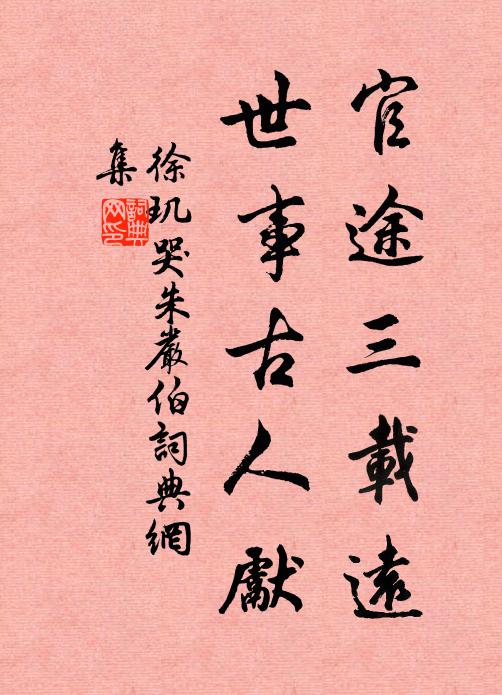 官途三載遠
世事古人獻
徐玑哭朱嚴伯詞典網
集
詞典
网印